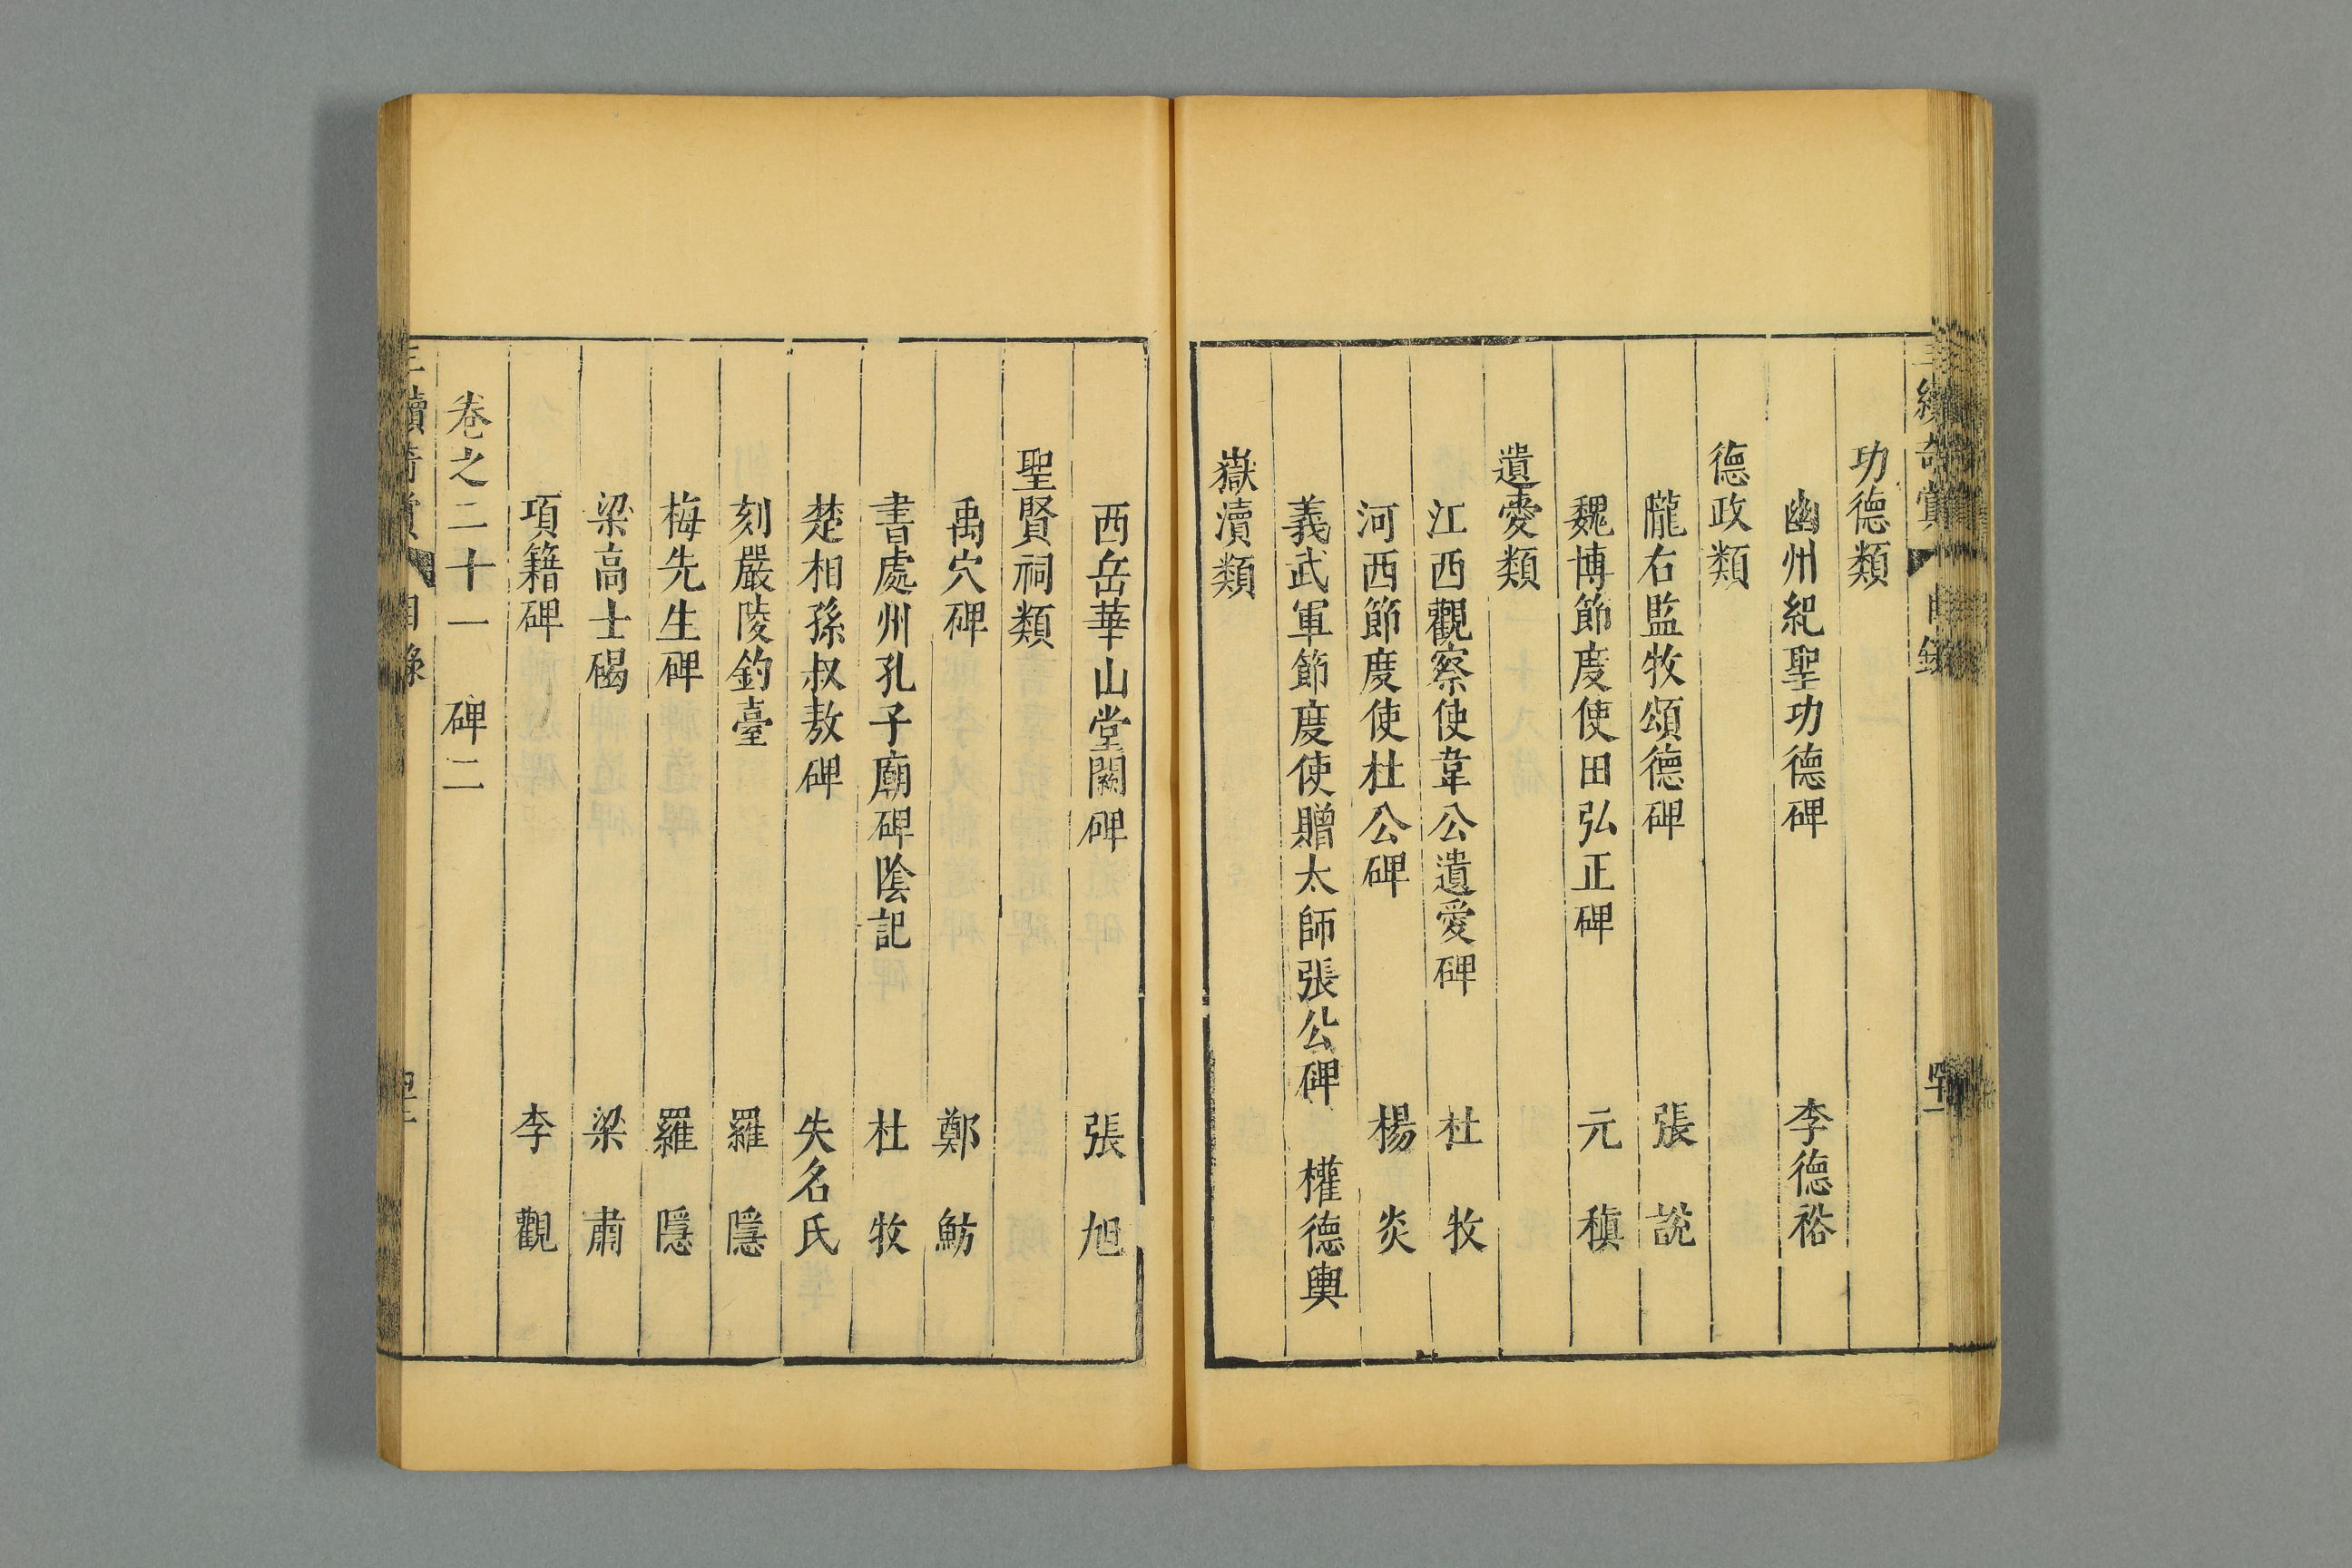 功德類
幽州紀聖功德碑 李德裕
德政類
隴右監牧頌德碑 張說
魏博節度使田弘正碑 元稹
遺愛類
江西觀察使韋公遺愛碑 杜牧
河西節度使杜公碑 楊炎
義武軍節度使贈太師張公碑 權德輿
嶽瀆類
西岳華山堂闕碑 張旭
聖賢祠類
禹穴碑 鄭魴
書處州孔子廟碑陰記 杜牧
楚相孫叔敖碑 失名氏
刻嚴陵釣臺 羅隱
梅先生碑 羅隱
梁高士碣 梁肅
項籍碑 李觀
卷之二十一 碑二